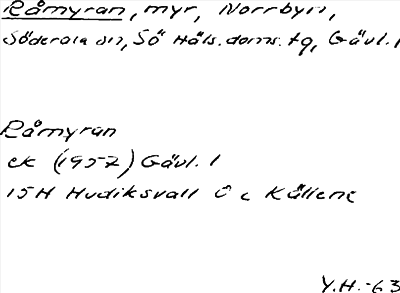 Råmyran, myr, Norrbyn,
Söderala sn, Sö Häls. doms. tg, Gävl. l
Råmyran
ek (1957) Gävl. l
15H Hudiksvall Ö c Källene
Y.H.-63